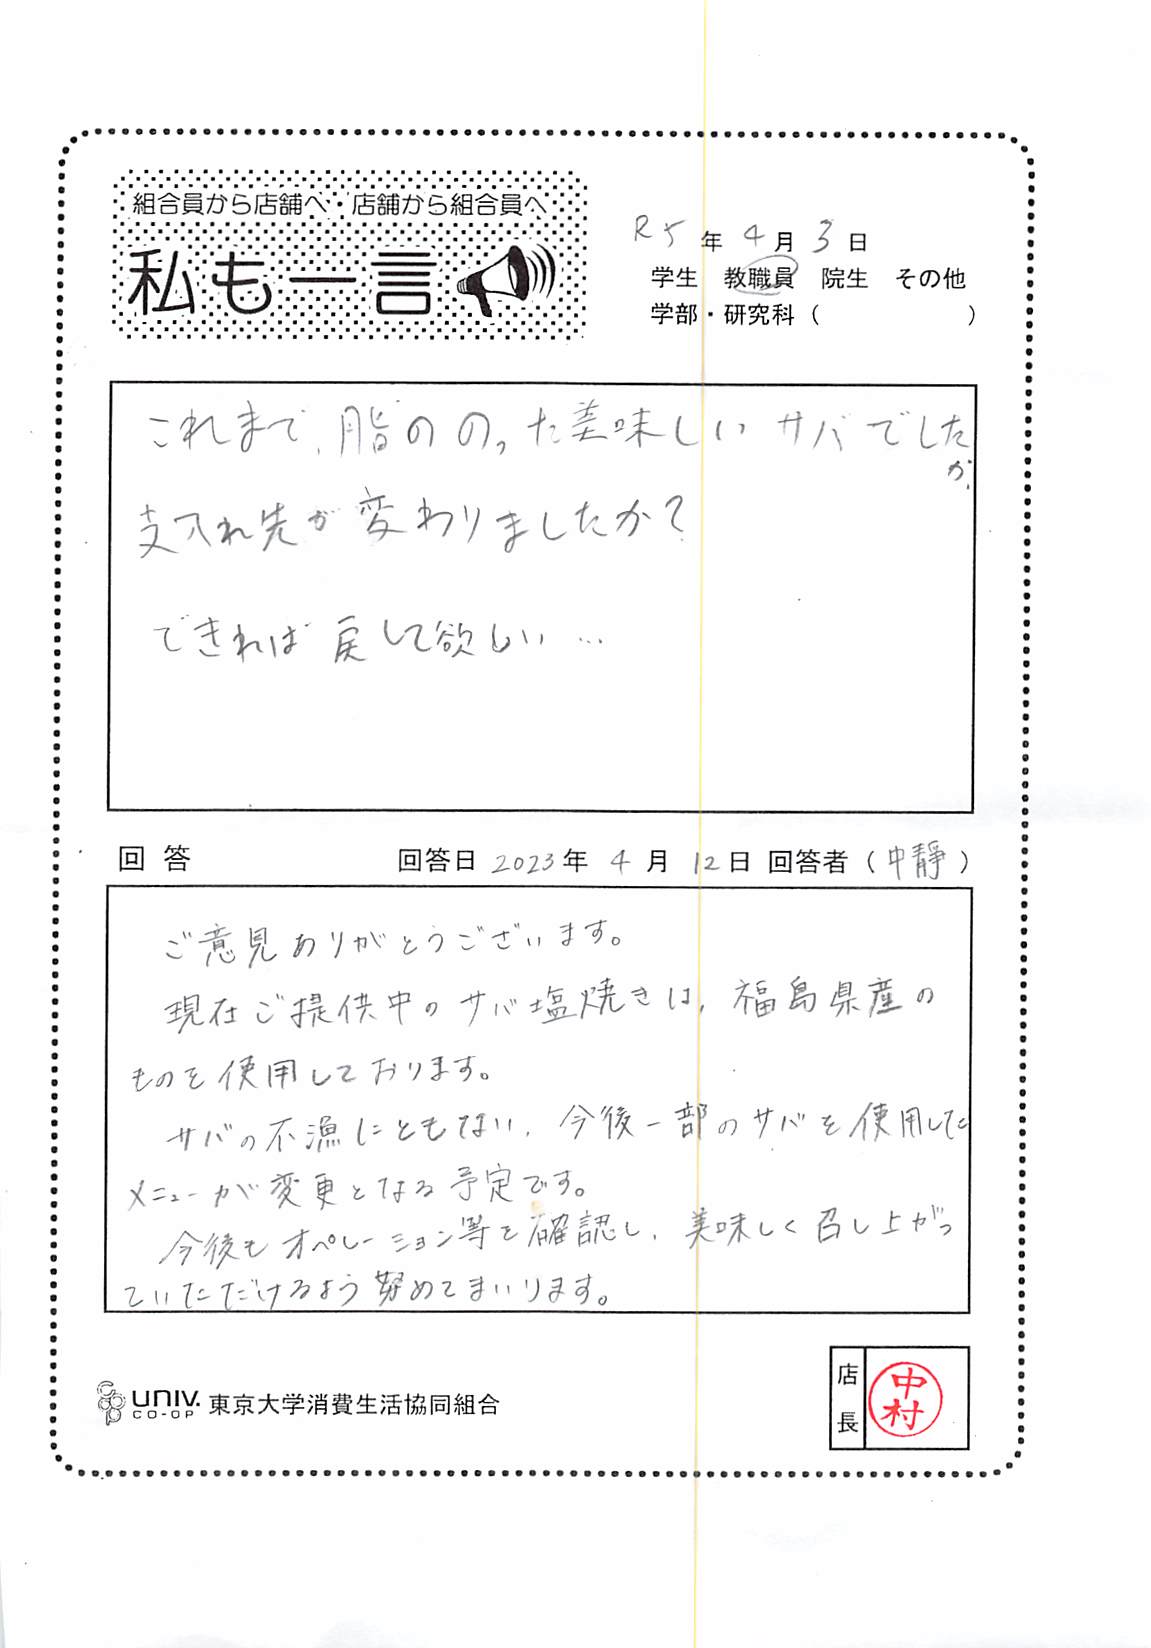 組合員から店舗へ・店舗から組合員へ
私も一言
R5年4月3日
学生 教職員 院生 その他
学部・研究科（　　　　　）
これまで、脂ののった美味しいサバでしたが、
支入れ先が変わりましたか？
できれば戻して欲しい…
回答 回答日 2023年 4月 12日 回答者（中靜）
ご意見ありがとうございます。
現在ご提供中のサバ塩焼きは、福島県産の
ものを使用しております。
サバの不漁にともない、今後一部のサバを使用した
メニューが変更となる予定です。
今後もオペレーション等を確認し、美味しく召し上がっ
ていただけるよう努めてまいります。
UNIV. CO-OP 東京大学消費生活協同組合
店長 中村